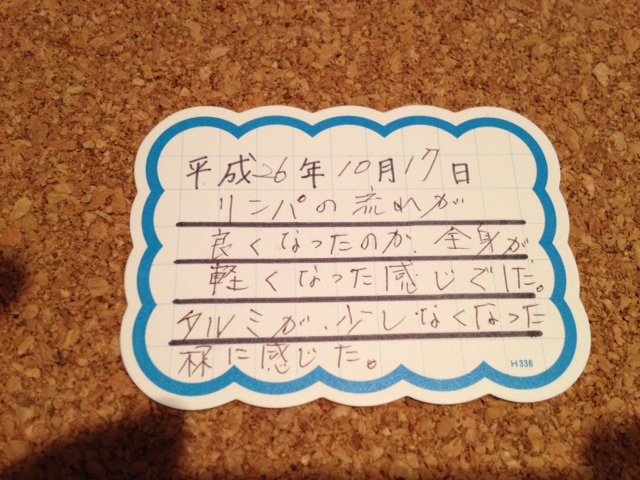 平成26年10月17日
リンパの流れが
良くなったのか、全身が
軽くなった感じでした。
タルミが、少しなくなった
様に感じた。
H336